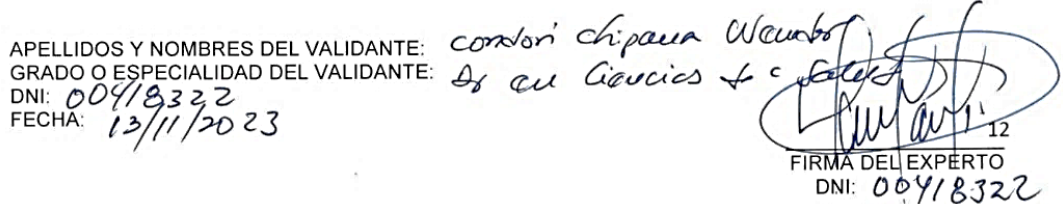 APELLIDOS Y NOMBRES DEL VALIDANTE: Condori Chipana
GRADO O ESPECIALIDAD DEL VALIDANTE: Dr en Ciencias
DNI: 00418322
FECHA: 13/11/2023
12
FIRMA DEL EXPERTO
DNI: 00418322